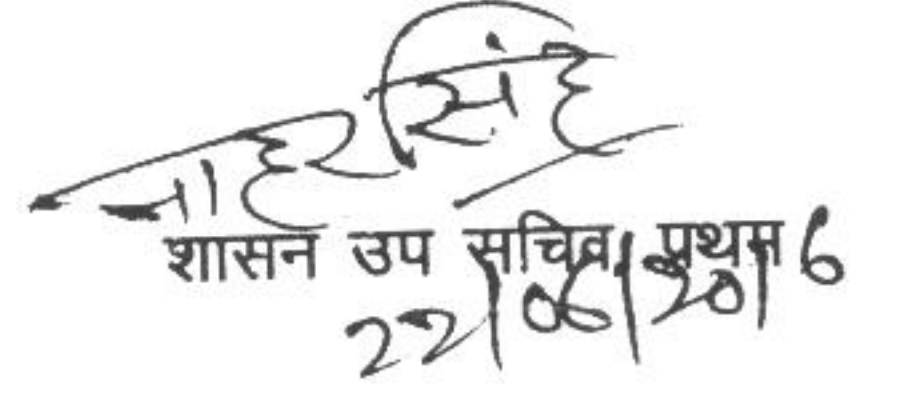 नाहर सिंह
शासन उप सचिव, प्रथम
22/06/2016